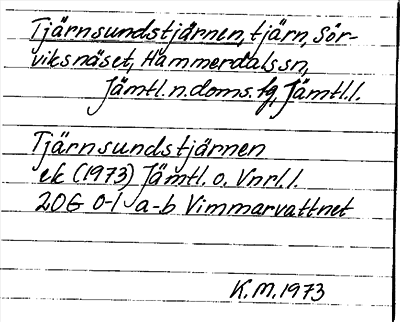 Tjärnsundstjärnen, tjärn, Sör-
viksnäset, Hammerdals sn,
Jämtl. n. doms. fg, Jämtl. l.
Tjärnsundstjärnen
ek (1973) Jämtl. o. Vnrl. l.
20G 0-1 a-b Vimmarvattnet
K.M. 1973